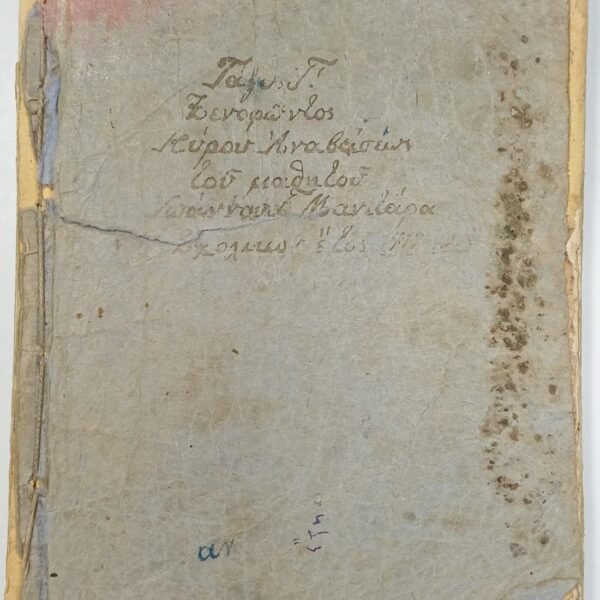 Τάξις Γ'
Ξενοφῶντος
Κύρου Ἀναβάσεως
τοῦ μαθητοῦ
Ἰωάννου Μανιάρα
Σχολικὸν ἔτος
αν